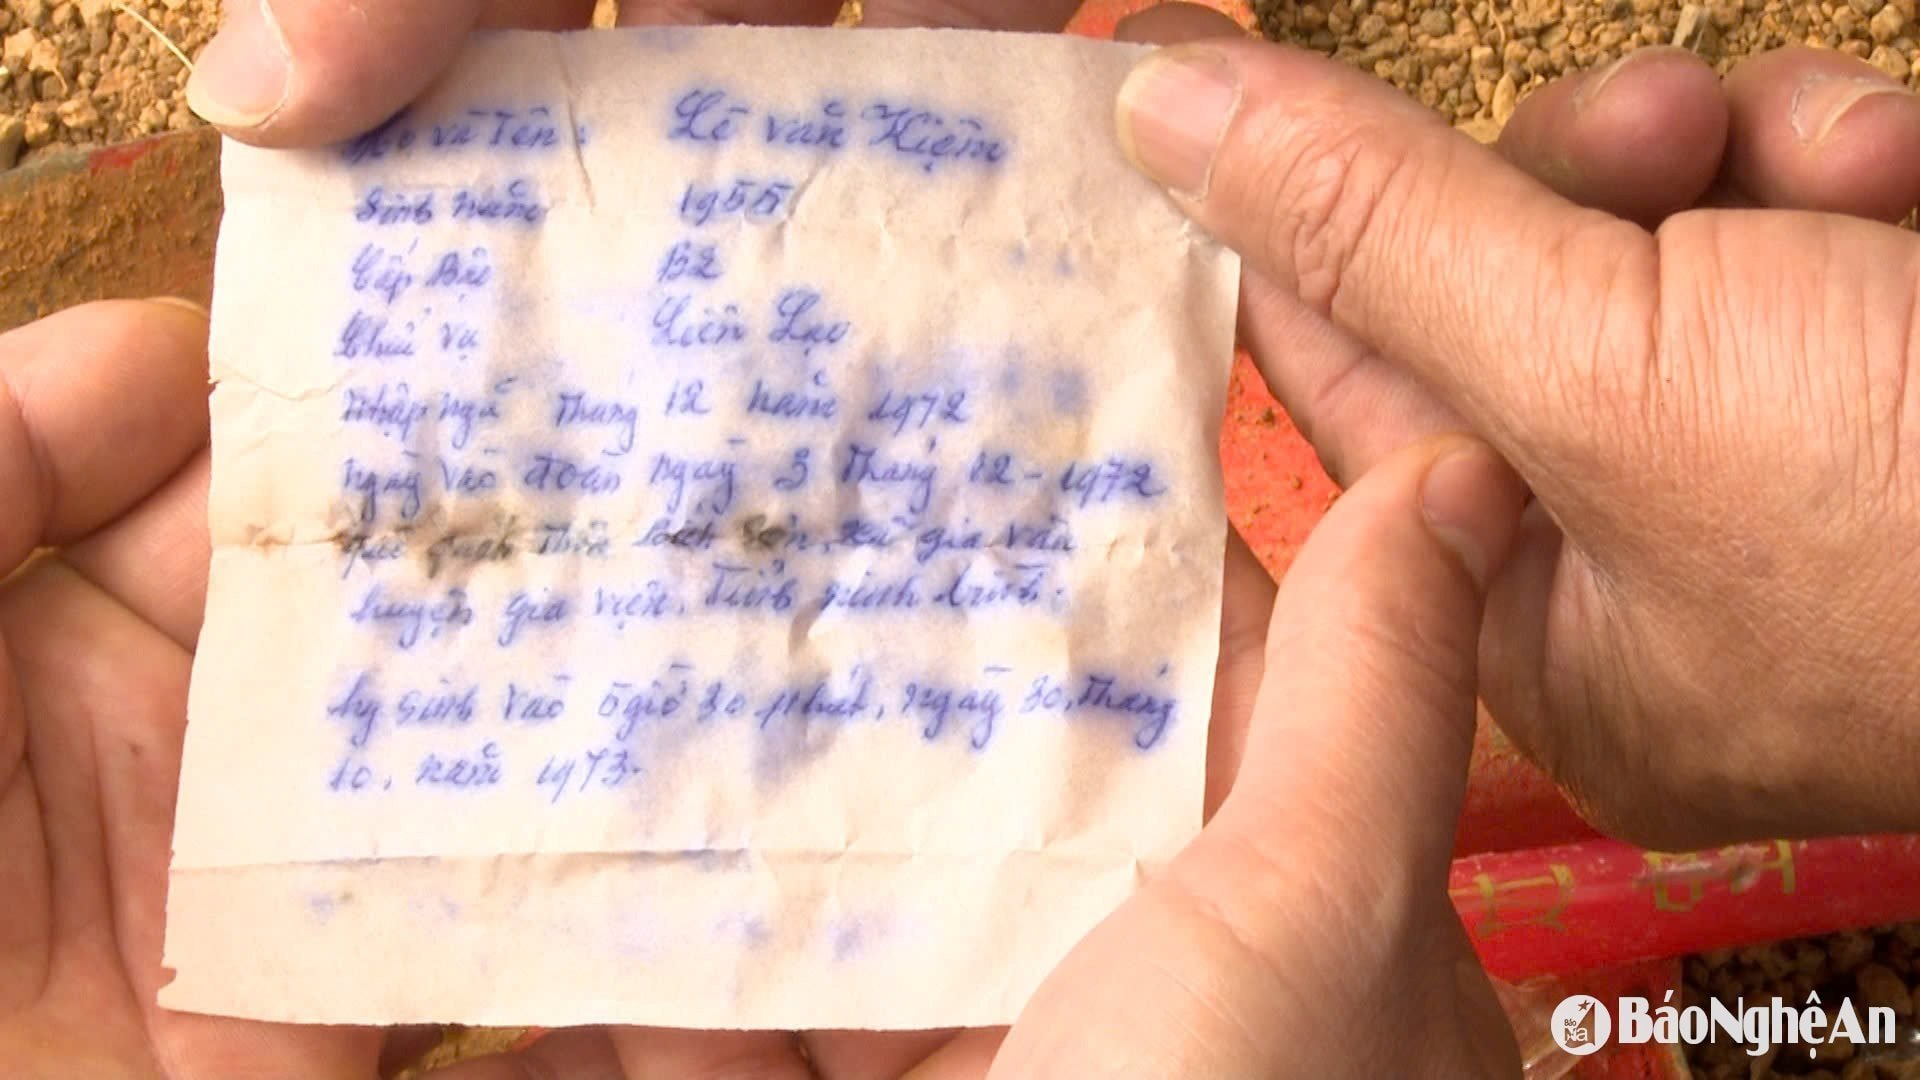 Họ và Tên: Lê văn Kiệm
Sinh năm 1955
Cấp Bậc B2
Chức vụ Liên Lạc
Nhập ngũ Tháng 12 năm 1972
ngày vào đoàn ngày 3 Tháng 12-1972
quê quán Thôn Sơn, Xã gia Vân
huyện gia viễn, Tỉnh ninh bình.
hy sinh vào 5giờ 30 phút, ngày 30, Tháng
10, năm 1973.
Báo Na
BáoNghệAn